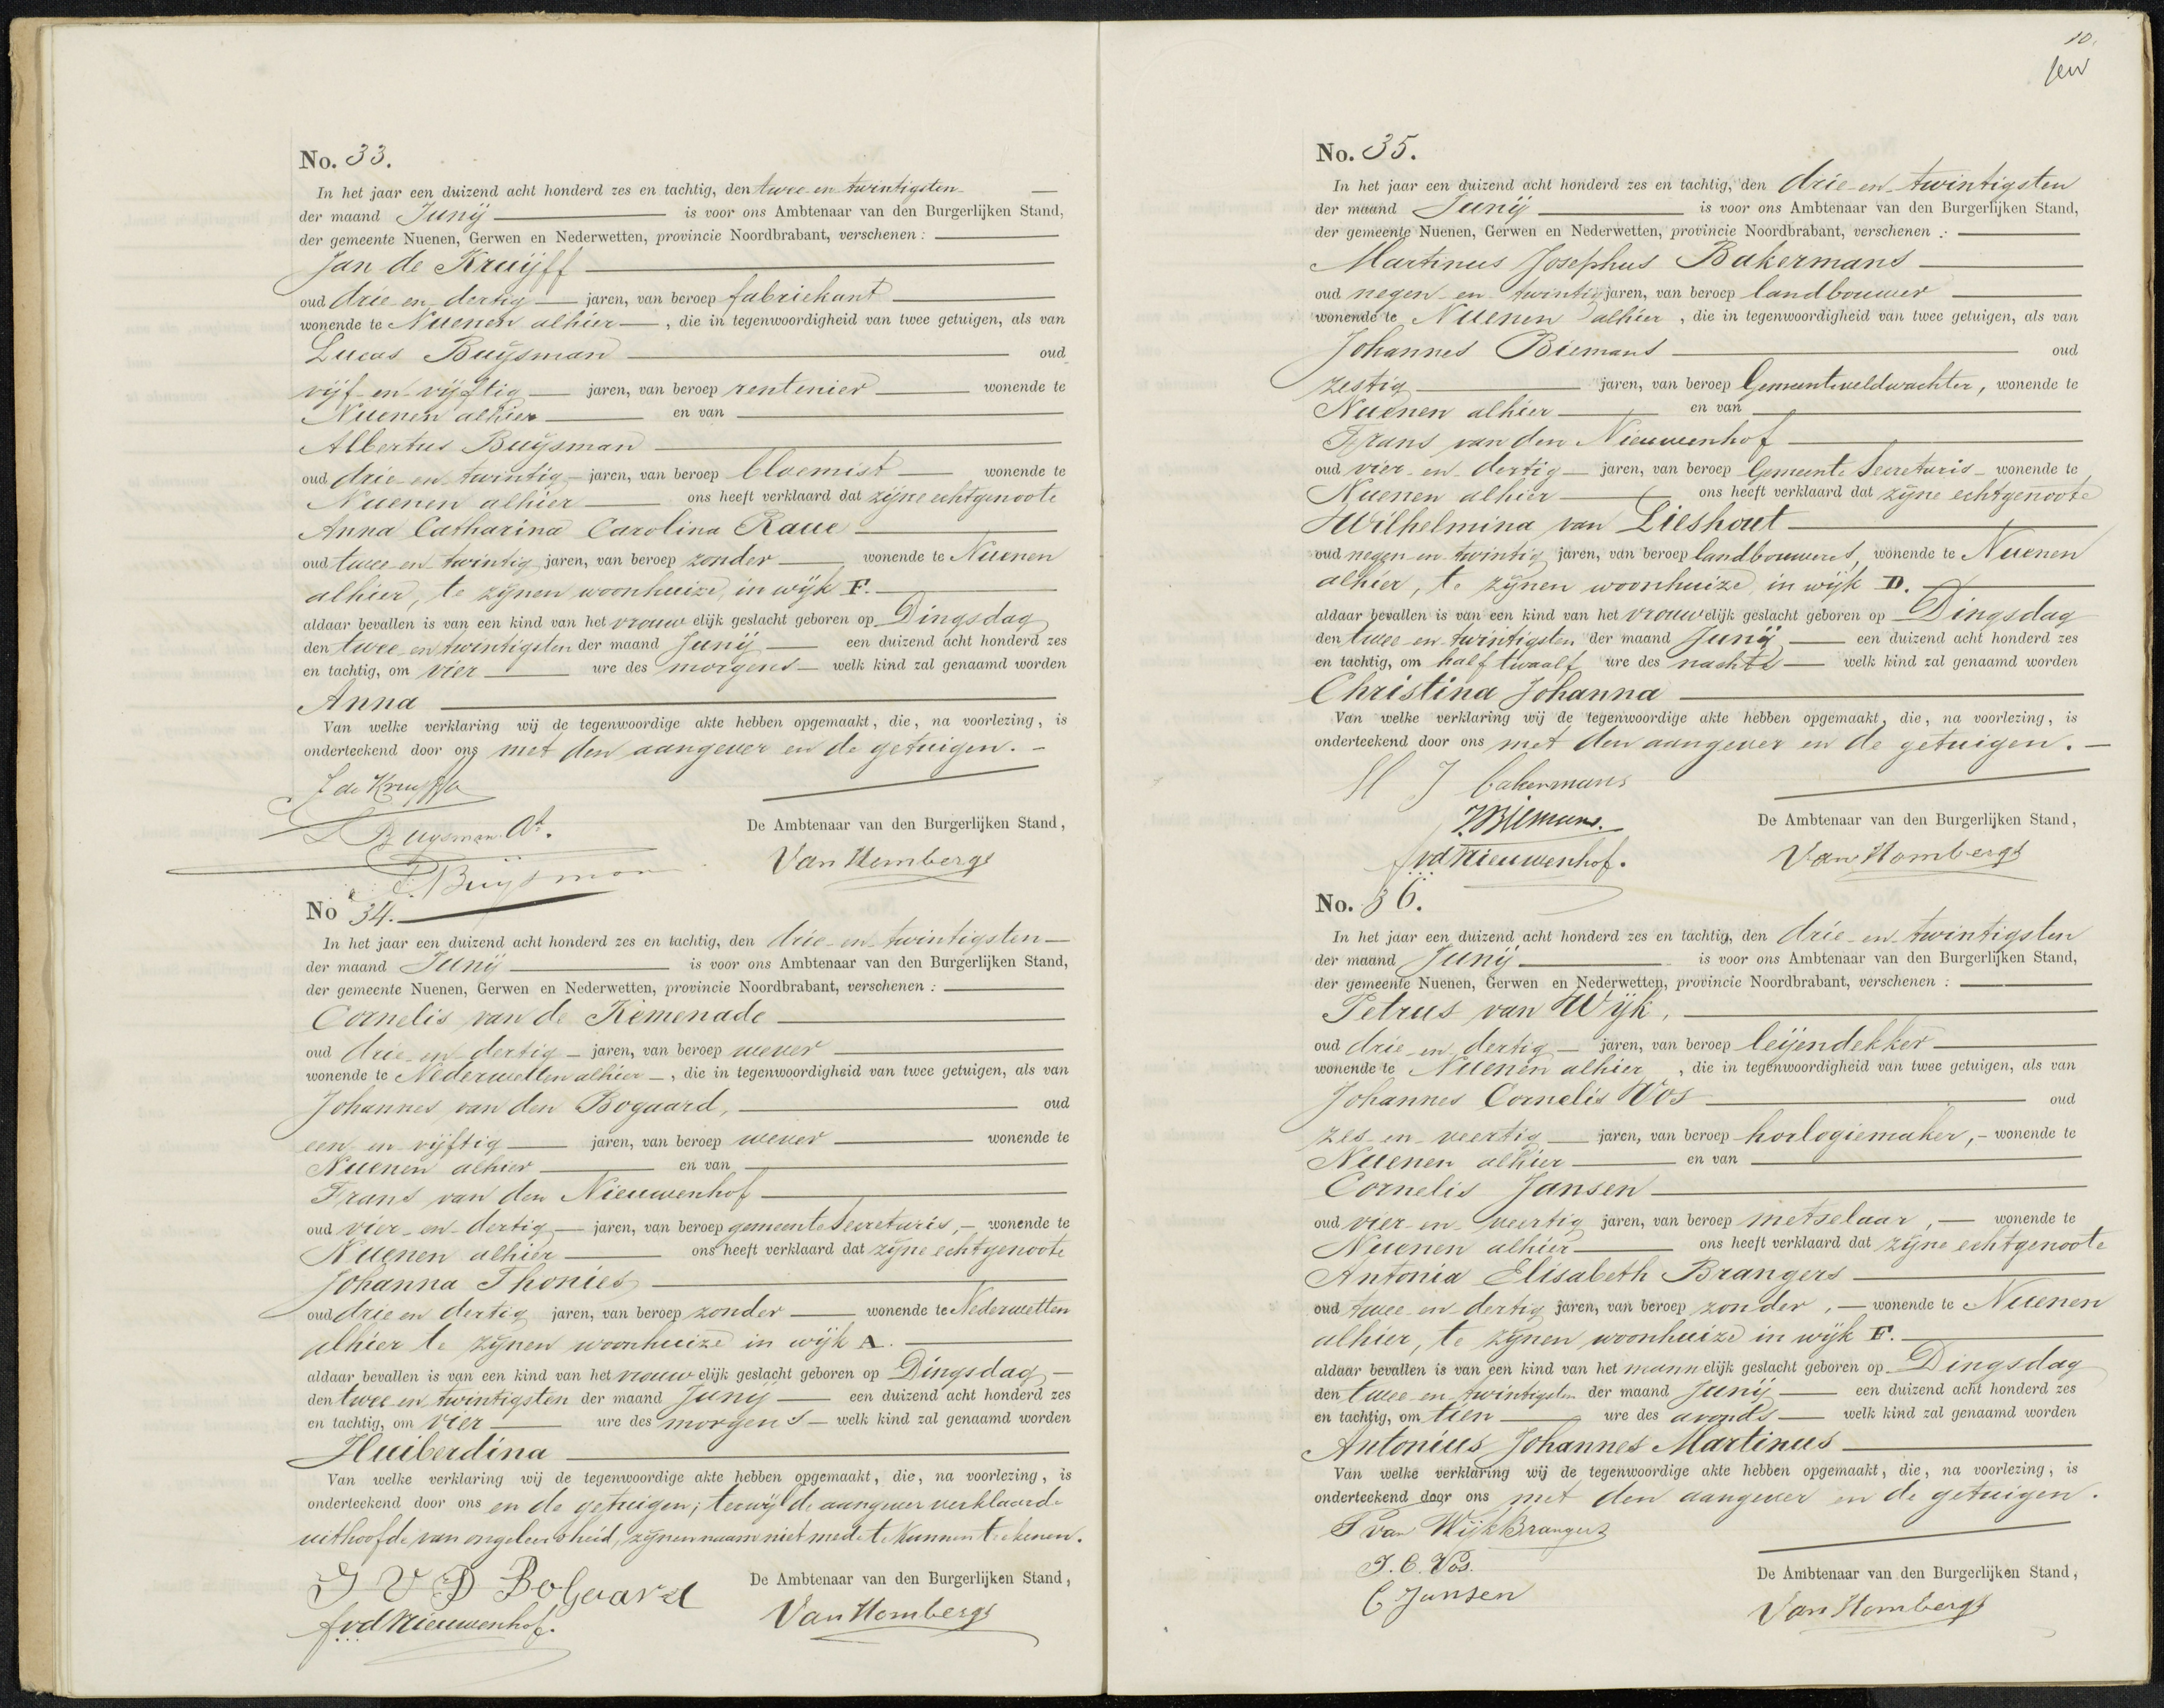 No. 33.
In het jaar een duizend acht honderd zes en tachtig, den twee en twintigsten
der maand Junij is voor ons Ambtenaar van den Burgerlijken Stand,
der gemeente Nuenen, Gerwen en Nederwetten, provincie Noordbrabant, verschenen:
Jan de Kruijff
oud drie en dertig jaren, van beroep fabriekant
wonende te Nuenen alhier, die in tegenwoordigheid van twee getuigen, als van
Lucas Buijsman oud
vijf en vijftig jaren, van beroep rentenier wonende te
Nuenen alhier en van
Albertus Buijsman
oud drie en twintig jaren, van beroep bloemist wonende te
Nuenen alhier ons heeft verklaard dat zijne echtgenoote
Anna Catharina Carolina Raue
oud twee en twintig jaren, van beroep zonder wonende te Nuenen
alhier, te zijnen woonhuize, in wijk F.
aldaar bevallen is van een kind van het vrouwelijk geslacht geboren op Dingsdag
den twee en twintigsten der maand Junij een duizend acht honderd zes
en tachtig, om vier ure des morgens welk kind zal genaamd worden
Anna
Van welke verklaring wij de tegenwoordige akte hebben opgemaakt, die, na voorlezing, is
onderteekend door ons met den aangever en de getuigen.
J de Kruyff
L Buysman
De Ambtenaar van den Burgerlijken Stand,
Buijsman
Van Hombergh
No 34.
In het jaar een duizend acht honderd zes en tachtig, den drie en twintigsten
der maand Junij is voor ons Ambtenaar van den Burgerlijken Stand,
der gemeente Nuenen, Gerwen en Nederwetten, provincie Noordbrabant, verschenen:
Cornelis van de Kemenade
oud drie en dertig jaren, van beroep wever
wonende te Nederwetten alhier, die in tegenwoordigheid van twee getuigen, als van
Johannes van den Bogaard, oud
een en vijftig jaren, van beroep wever wonende te
Nuenen alhier en van
Frans van den Nieuwenhof
oud vier en dertig jaren, van beroep gemeente Secretaris, wonende te
Nuenen alhier ons heeft verklaard dat zijne echtgenoote
Johanna Thonies
oud drie en dertig jaren, van beroep zonder wonende te Nederwetten
alhier te zijnen woonhuize in wijk A.
aldaar bevallen is van een kind van het vrouwelijk geslacht geboren op Dingsdag
den twee en twintigsten der maand Junij een duizend acht honderd zes
en tachtig, om vier ure des morgens welk kind zal genaamd worden
Huiberdina
Van welke verklaring wij de tegenwoordige akte hebben opgemaakt, die, na voorlezing, is
onderteekend door ons en de getuigen; terwijl de aangever verklaarde
uithoofde van ongeleerdheid, zijnen naam niet mede te kunnen teekenen.
J V D Bogaard
De Ambtenaar van den Burgerlijken Stand,
fvdNieuwenhof.
Van Hombergh
10.
No. 35.
In het jaar een duizend acht honderd zes en tachtig, den drie en twintigsten
der maand Junij is voor ons Ambtenaar van den Burgerlijken Stand,
der gemeente Nuenen, Gerwen en Nederwetten, provincie Noordbrabant, verschenen:
Martinus Josephus Bakermans
oud negen en twintig jaren, van beroep landbouwer
wonende te Nuenen alhier, die in tegenwoordigheid van twee getuigen, als van
Johannes Biemans oud
zestig jaren, van beroep Gemeenteveldwachter, wonende te
Nuenen alhier en van
Frans van den Nieuwenhof
oud vier en dertig jaren, van beroep Gemeente Secretaris wonende te
Nuenen alhier ons heeft verklaard dat zijne echtgenoote
Wilhelmina van Lieshout
oud negen en twintig jaren, van beroep landbouweres, wonende te Nuenen
alhier, te zijnen woonhuize, in wijk D.
aldaar bevallen is van een kind van het vrouwelijk geslacht geboren op Dingsdag
den twee en twintigsten der maand Junij een duizend acht honderd zes
en tachtig, om half twaalf ure des nachts welk kind zal genaamd worden
Christina Johanna
Van welke verklaring wij de tegenwoordige akte hebben opgemaakt, die, na voorlezing, is
onderteekend door ons met den aangever en de getuigen.
M J bakermans
J. Biemans.
De Ambtenaar van den Burgerlijken Stand,
fvdNieuwenhof.
Van Hombergh
No. 36.
In het jaar een duizend acht honderd zes en tachtig, den drie en twintigsten
der maand Junij is voor ons Ambtenaar van den Burgerlijken Stand,
der gemeente Nuenen, Gerwen en Nederwetten, provincie Noordbrabant, verschenen:
Petrus van Wijk,
oud drie en dertig jaren, van beroep leijendekker
wonende te Nuenen alhier, die in tegenwoordigheid van twee getuigen, als van
Johannes Cornelis Vos oud
zes en veertig jaren, van beroep horlogiemaker, wonende te
Nuenen alhier en van
Cornelis Jansen
oud vier en veertig jaren, van beroep metselaar, wonende te
Nuenen alhier ons heeft verklaard dat zijne echtgenoote
Antonia Elisabeth Brangers
oud twee en dertig jaren, van beroep zonder, wonende te Nuenen
alhier, te zijnen woonhuize in wijk F.
aldaar bevallen is van een kind van het mannelijk geslacht geboren op Dingsdag
den twee en twintigsten der maand Junij een duizend acht honderd zes
en tachtig, om tien ure des avonds welk kind zal genaamd worden
Antonius Johannes Martinus
Van welke verklaring wij de tegenwoordige akte hebben opgemaakt, die, na voorlezing, is
onderteekend door ons met den aangever en de getuigen.
P van Wijk Brangers
J. C. Vos.
De Ambtenaar van den Burgerlijken Stand,
C Jansen
Van Hombergh